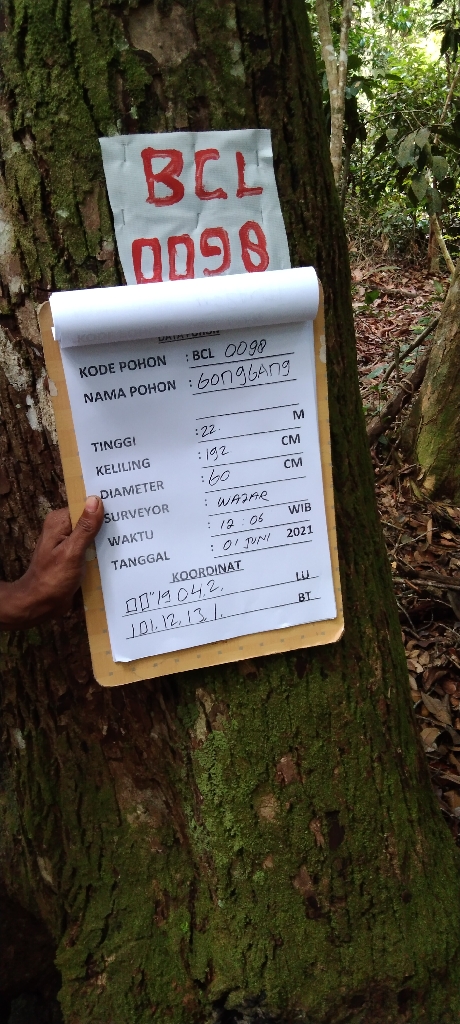 BCL
0098
DATA POHON
KODE POHON : BCL 0098
NAMA POHON : GONGGANG
TINGGI : 22. M
KELILING : 192 CM
DIAMETER : 60 CM
SURVEYOR : WAZAR
WAKTU : 12 : 06 WIB
TANGGAL : 01 JUNI 2021
KOORDINAT
00°19 04.2. LU
101.12.13.1. BT